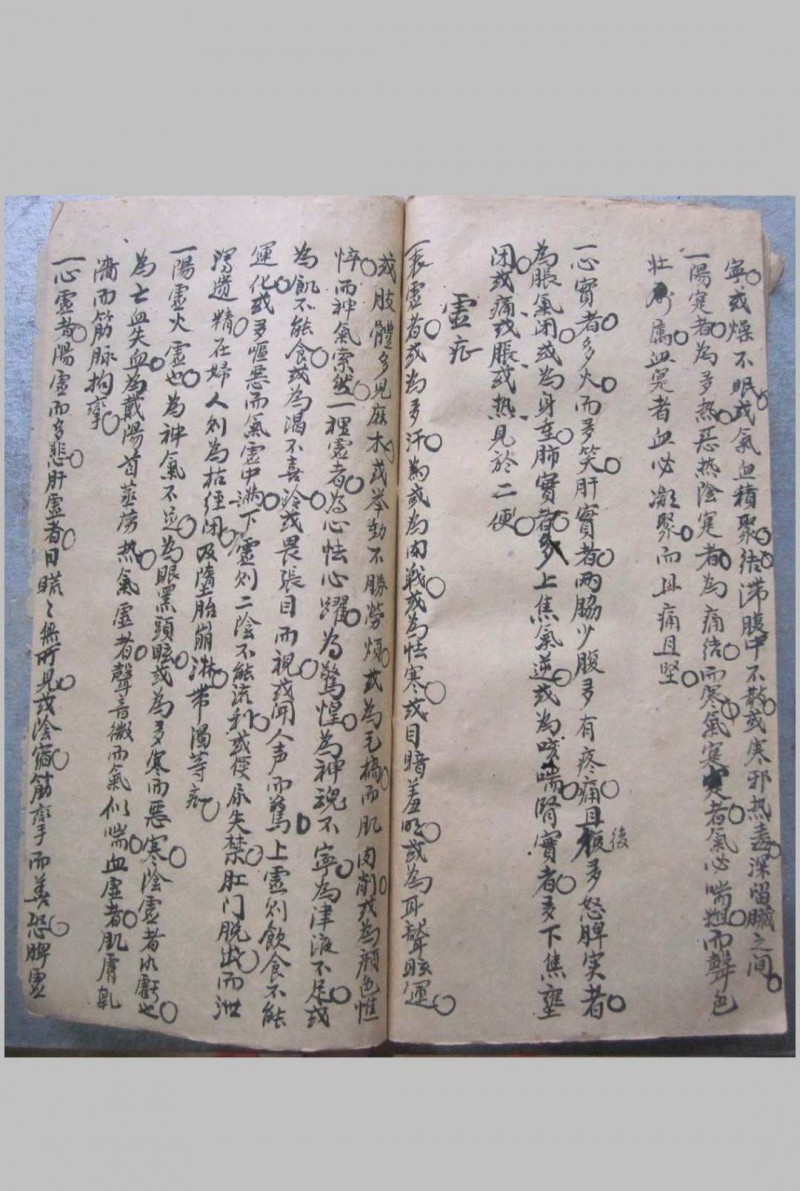 寧或燥不眠或氣血積聚結滯腹中不散或寒邪熱毒深留臟之间
一陽寔者為多熱惡热陰寔者為痛结而寒氣寔寔者氣必喘粗而聲色
壯厲血寔者血必凝聚而且痛且坚
一心實者多火而多笑肝實者两脇少腹多有疼痛且後多怒脾实者
為脹氣闭或為身重肺實者多上焦氣逆或為咳喘腎實者多下焦壅
闭或痛或脹或热見於二便
虚症
一表虚者或為多汗或為肉戦或為怯寒或目暗羞明或為耳聾眩運
或肢體多見麻木或举動不勝勞煩或為毛槁而肌肉削或為顔色憔
悴而神氣索然一裡虚者為心怯心躍為驚惶為神魂不寧為津液不足或
為飢不能食或為渴不喜冷或畏張目而視或闻人声而驚上虚则飲食不能
運化或多嘔惡而氣虚中滿下虚则二陰不能流利或便尿失禁肛门脱出而泄
瀉遺精在婦人则為枯經闭及墮胎崩淋带濁等症
一陽虚火虚也為神氣不足為眼黑頭眩或為多寒而惡寒陰虚者水虧也
為亡血失血為戴陽骨蒸痨热氣虚者聲音微而氣似喘血虚者肌膚乾
濇而筋脉拘攣
一心虚者陽虚而多悲肝虚者目䀮〻無所見或陰縮筋攣而善恐脾虚